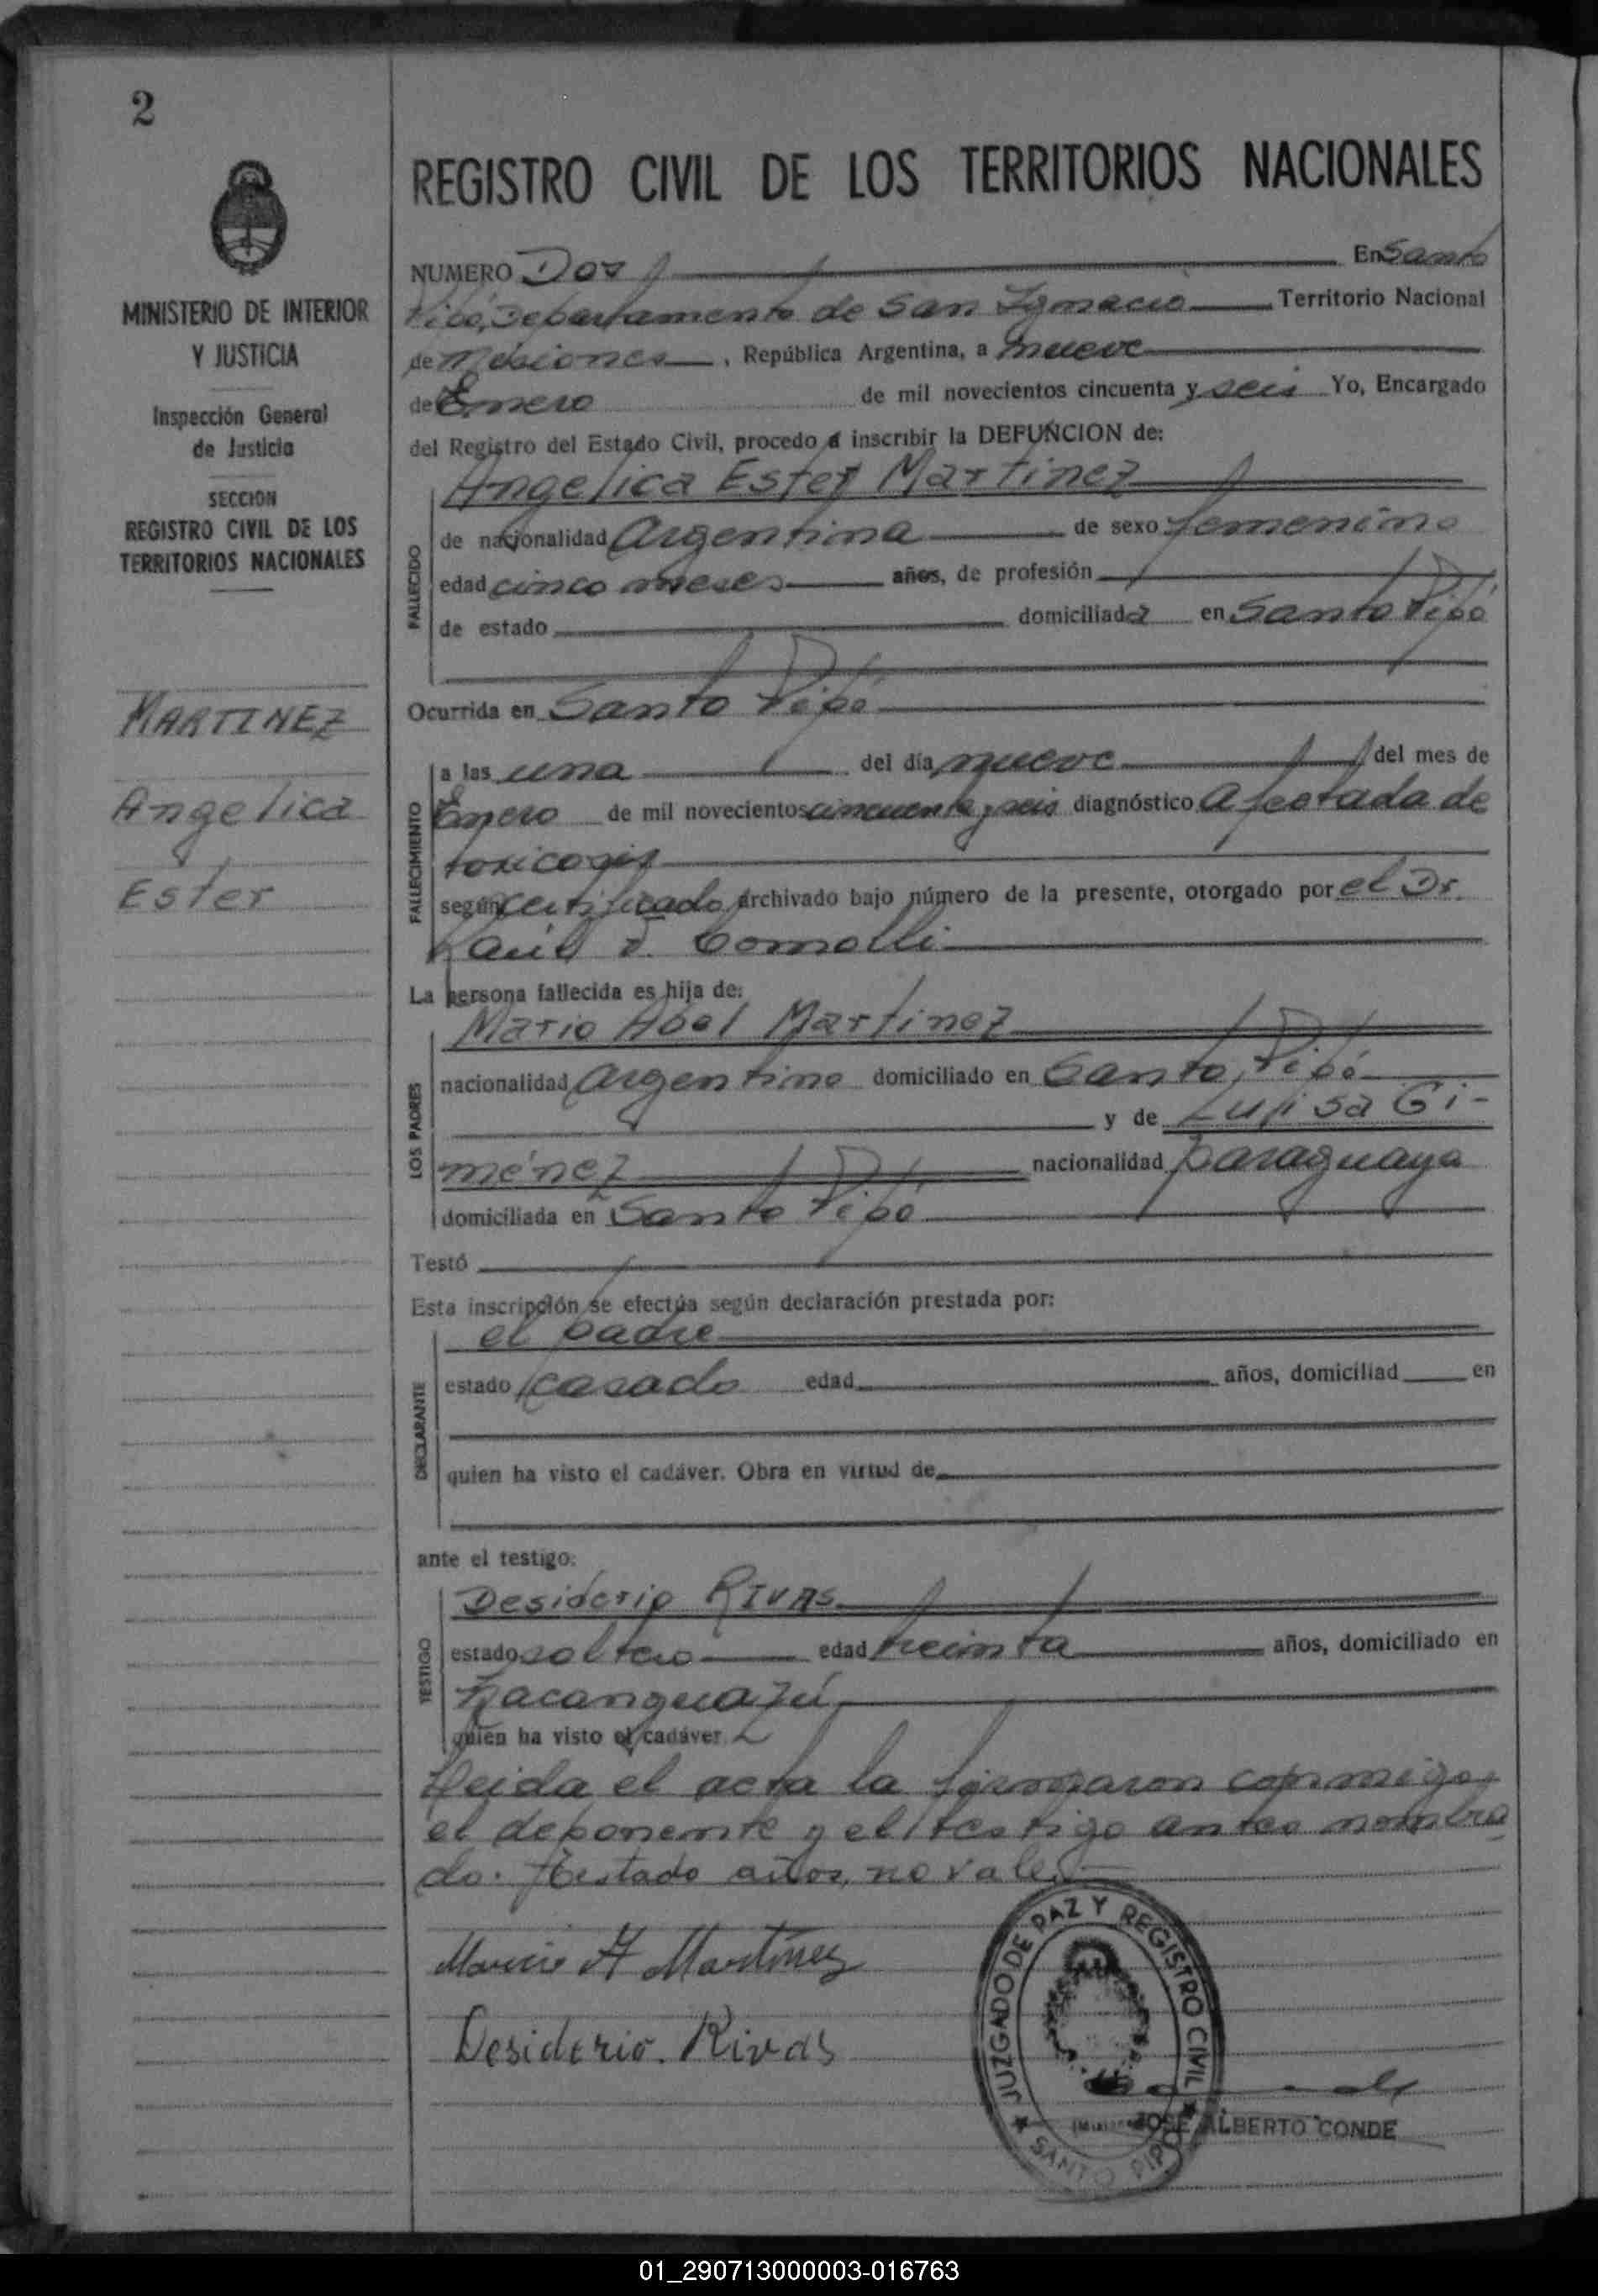 2
MINISTERIO DE INTERIOR
Y JUSTICIA
Inspección General
de Justicia
SECCION
REGISTRO CIVIL DE LOS
TERRITORIOS NACIONALES
MARTINEZ
Angelica
Ester
REGISTRO CIVIL DE LOS TERRITORIOS NACIONALES
NUMERO Dos En Santo
Pipó, Departamento de San Ignacio Territorio Nacional
de Misiones, República Argentina, a nueve
de Enero de mil novecientos cincuenta y seis Yo, Encargado
del Registro del Estado Civil, procedo a inscribir la DEFUNCION de:
Angelica Ester Martinez
FALLECIDO
de nacionalidad Argentina de sexo femenino
edad cinco meses años, de profesión
de estado domiciliada en Santo Pipó
Ocurrida en Santo Pipó
FALLECIMIENTO
a las una del día nueve del mes de
Enero de mil novecientos cincuenta y seis diagnóstico Afectada de
toxicosis
según certificado archivado bajo número de la presente, otorgado por el Dr.
Raúl Comolli
La persona fallecida es hija de:
LOS PADRES
Mario Abel Martinez
nacionalidad Argentino domiciliado en Santo Pipó
y de Luisa Gi-
ménez nacionalidad paraguaya
domiciliada en Santo Pipó
Testó
Esta inscripción se efectúa según declaración prestada por:
DECLARANTE
el padre
estado casado edad años, domiciliad en
quien ha visto el cadáver. Obra en virtud de
ante el testigo:
TESTIGO
Desiderio RIVAS
estado soltero edad treinta años, domiciliado en
Ñacanguazú
quien ha visto el cadáver
Leida el acta la firmaron conmigo,
el deponente y el testigo antes nombra
do. Testado años, no vale.
Mario A Martínez
Desiderio. Rivas
JUZGADO DE PAZ Y REGISTRO CIVIL
SANTO PIPO
JOSE ALBERTO CONDE
01_290713000003-016763